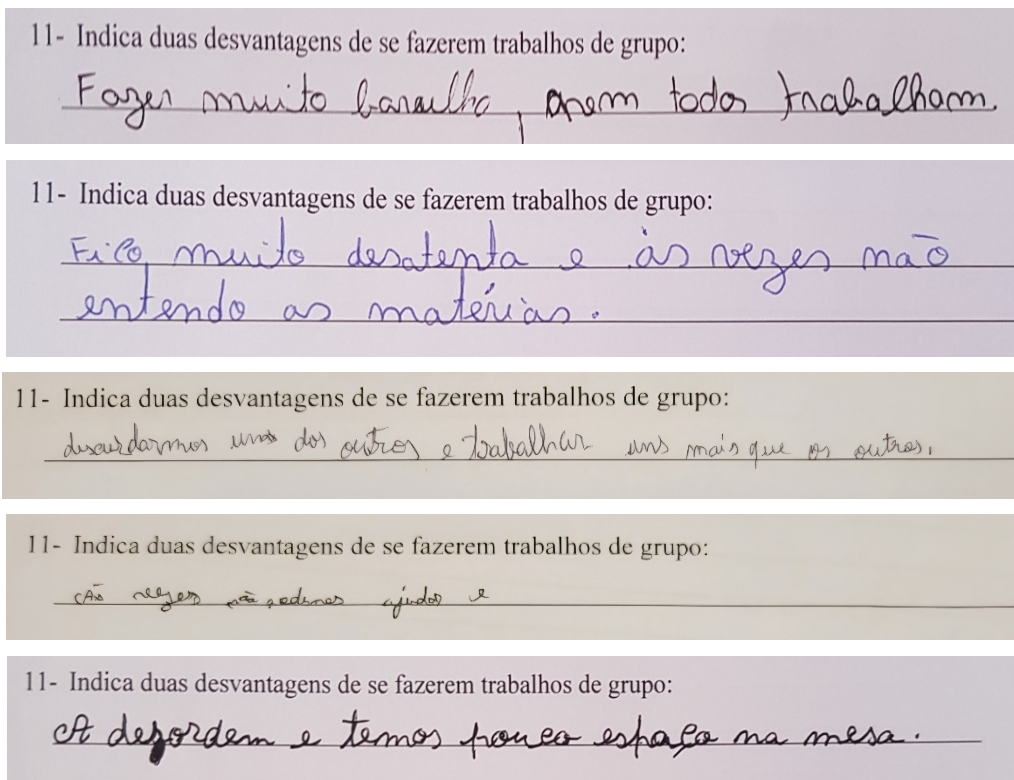 11- Indica duas desvantagens de se fazerem trabalhos de grupo:
Fazer muito barulho, nem todos trabalham.
11- Indica duas desvantagens de se fazerem trabalhos de grupo:
Fico muito desatenta e às vezes não
entendo as matérias.
11- Indica duas desvantagens de se fazerem trabalhos de grupo:
discurdarmos uns dos outros e trabalhar uns mais que os outros.
11- Indica duas desvantagens de se fazerem trabalhos de grupo:
Às vezes não podemos ajudar e
11- Indica duas desvantagens de se fazerem trabalhos de grupo:
A dezordem e temos pouco espaço na mesa.